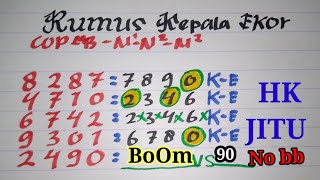 Rumus Kepala Ekor
COP EB - N¹-N²-N²
8 2 8 7 = 7 8 9 0 K-E
4 7 1 0 = 2 3 4 6 K-E
6 7 4 2 = 2 × 3 × 4 × 6 × K-E
9 3 0 1 = 6 7 8 0 K-E
2 4 9 0 = BoOm vs 90 No bb
HK
JITU